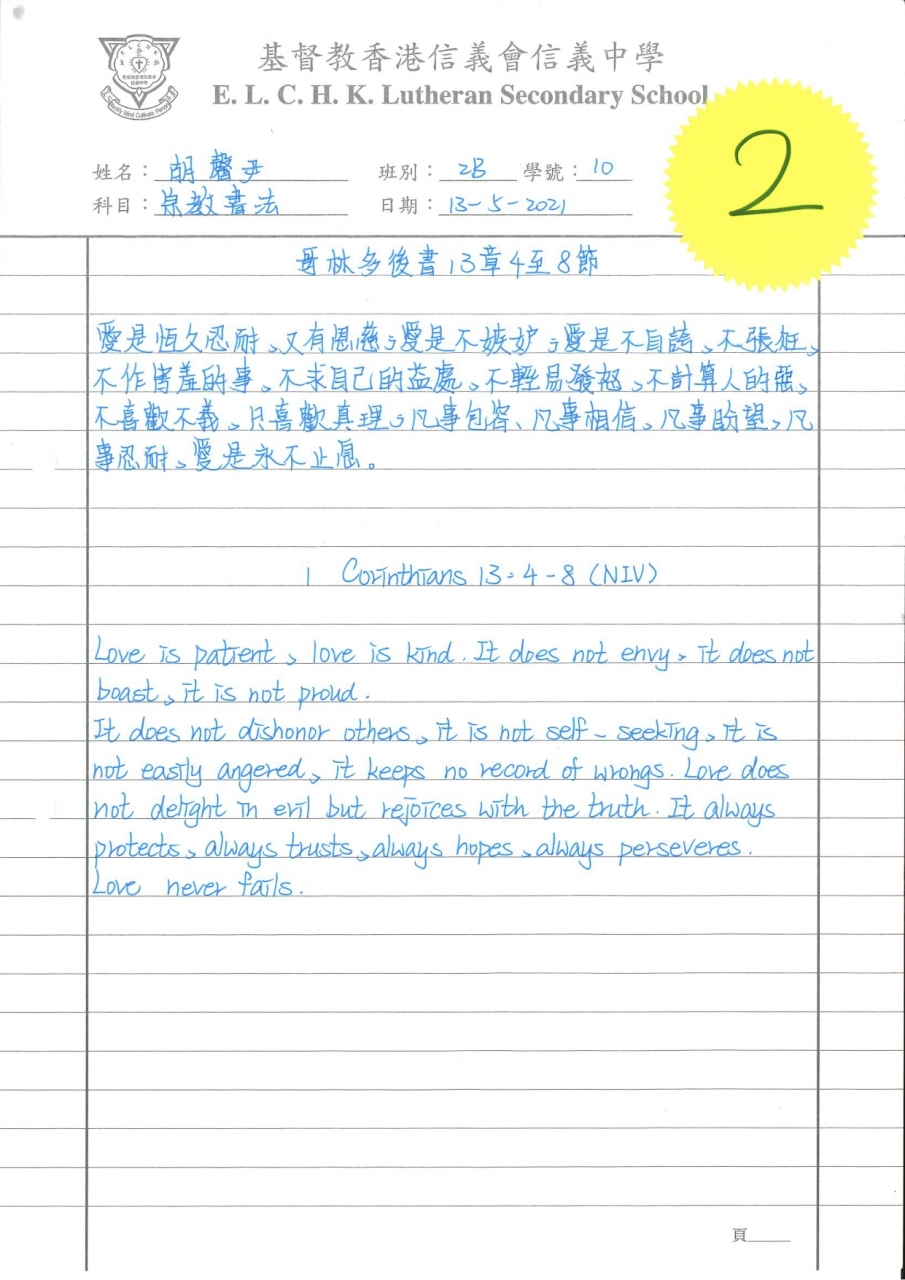 基督教香港信義會信義中學
E. L. C. H. K. Lutheran Secondary School
2
姓名：胡馨尹 班別：2B 學號：10
科目：宗教書法 日期：13-5-2021
哥林多後書13章4至8節
愛是恆久忍耐、又有恩慈；愛是不嫉妒；愛是不自誇、不張狂、
不作害羞的事、不求自己的益處、不輕易發怒、不計算人的惡、
不喜歡不義、只喜歡真理；凡事包容、凡事相信、凡事盼望、凡
事忍耐、愛是永不止息。
1 Corinthians 13:4-8 (NIV)
Love is patient, love is kind. It does not envy, it does not
boast, it is not proud.
It does not dishonor others, it is not self-seeking, it is
not easily angered, it keeps no record of wrongs. Love does
not delight in evil but rejoices with the truth. It always
protects, always trusts, always hopes, always perseveres.
Love never fails.
頁